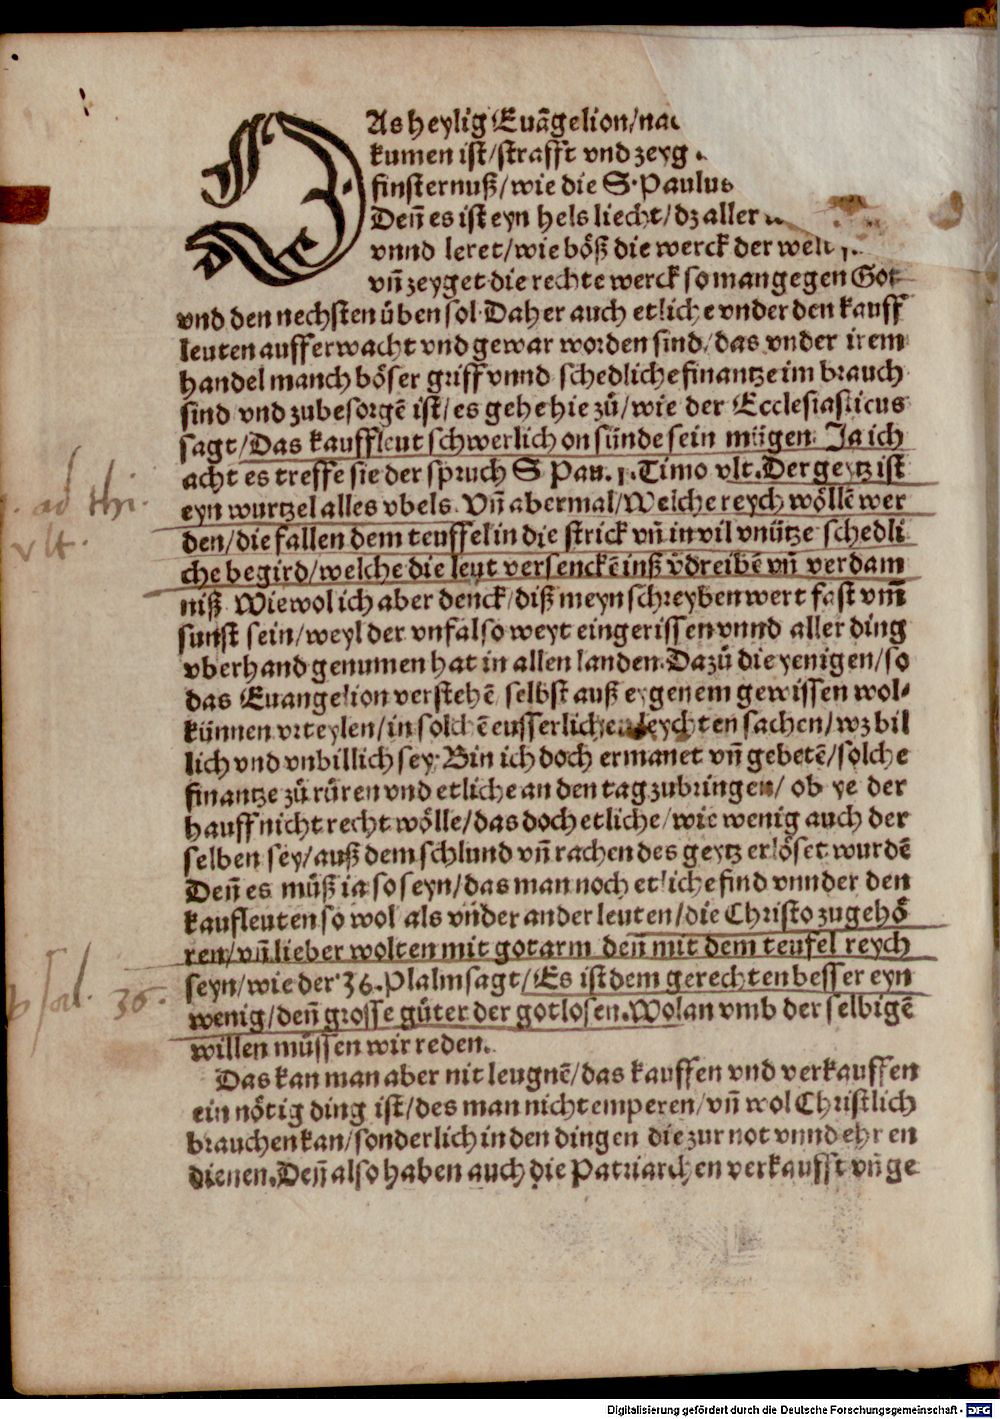 DAs heylig Euãgelion/na
kumen ist/strafft vnd zeyg
finsternuß/wie die S. Paulus
Deñ es ist eyn hels liecht/dz aller
vnnd leret/wie böß die werck der welt
vñ zeyget die rechte werck so man gegen Got
vnd den nechsten üben sol. Daher auch etliche vnder den kauff
leuten aufferwacht vnd gewar worden sind/das vnder irem
handel manch böser griff vnnd schedliche finantze im brauch
sind vnd zubesorgẽ ist/es gehe hie zů/wie der Ecclesiasticus
sagt/Das kauffleut schwerlich on sünde sein mügen. Ja ich
acht es treffe sie der spruch S Pau. 1. Timo vlt. Der geytz ist
eyn wurtzel alles vbels. Vñ abermal/Welche reych wöllẽ wer
den/die fallen dem teuffel in die strick vñ in vil vnütze schedli
che begird/welche die leut versenckẽ inß v̈dreibẽ vñ verdam
niß. Wiewol ich aber denck/diß meyn schreyben wert fast vm̃
sunst sein/weyl der vnfal so weyt eingerissen vnnd aller ding
vberhand genumen hat in allen landen. Dazů die yenigen/so
das Euangelion verstehẽ selbst auß eygenem gewissen wol-
künnen vrteylen/in solchẽ eusserlichen leychten sachen/wz bil
lich vnd vnbillich sey. Bin ich doch ermanet vñ gebetẽ/solche
finantze zů rüren vnd etliche an den tag zubringen/ ob ye der
hauff nicht recht wölle/das doch etliche/wie wenig auch der
selben sey/auß dem schlund vñ rachen des geytz erlöset wurdẽ
Deñ es můß ia so seyn/das man noch etliche find vnnder den
kaufleuten so wol als vnder ander leuten/die Christo zugehö
ren/vñ lieber wolten mit got arm deñ mit dem teufel reych
seyn/wie der 36. Plalm sagt/Es ist dem gerechten besser eyn
wenig/deñ grosse güter der gotlosen. Wolan vmb der selbigẽ
willen müssen wir reden.
Das kan man aber nit leugnẽ/das kauffen vnd verkauffen
ein nötig ding ist/des man nicht emperen/vñ wol Christlich
brauchen kan/sonderlich in den dingen die zur not vnnd ehren
dienen. Deñ also haben auch die Patriarchen verkaufft vñ ge
1. ad thi.
vlt.
psal. 36.
Digitalisierung gefördert durch die Deutsche Forschungsgemeinschaft - DFG